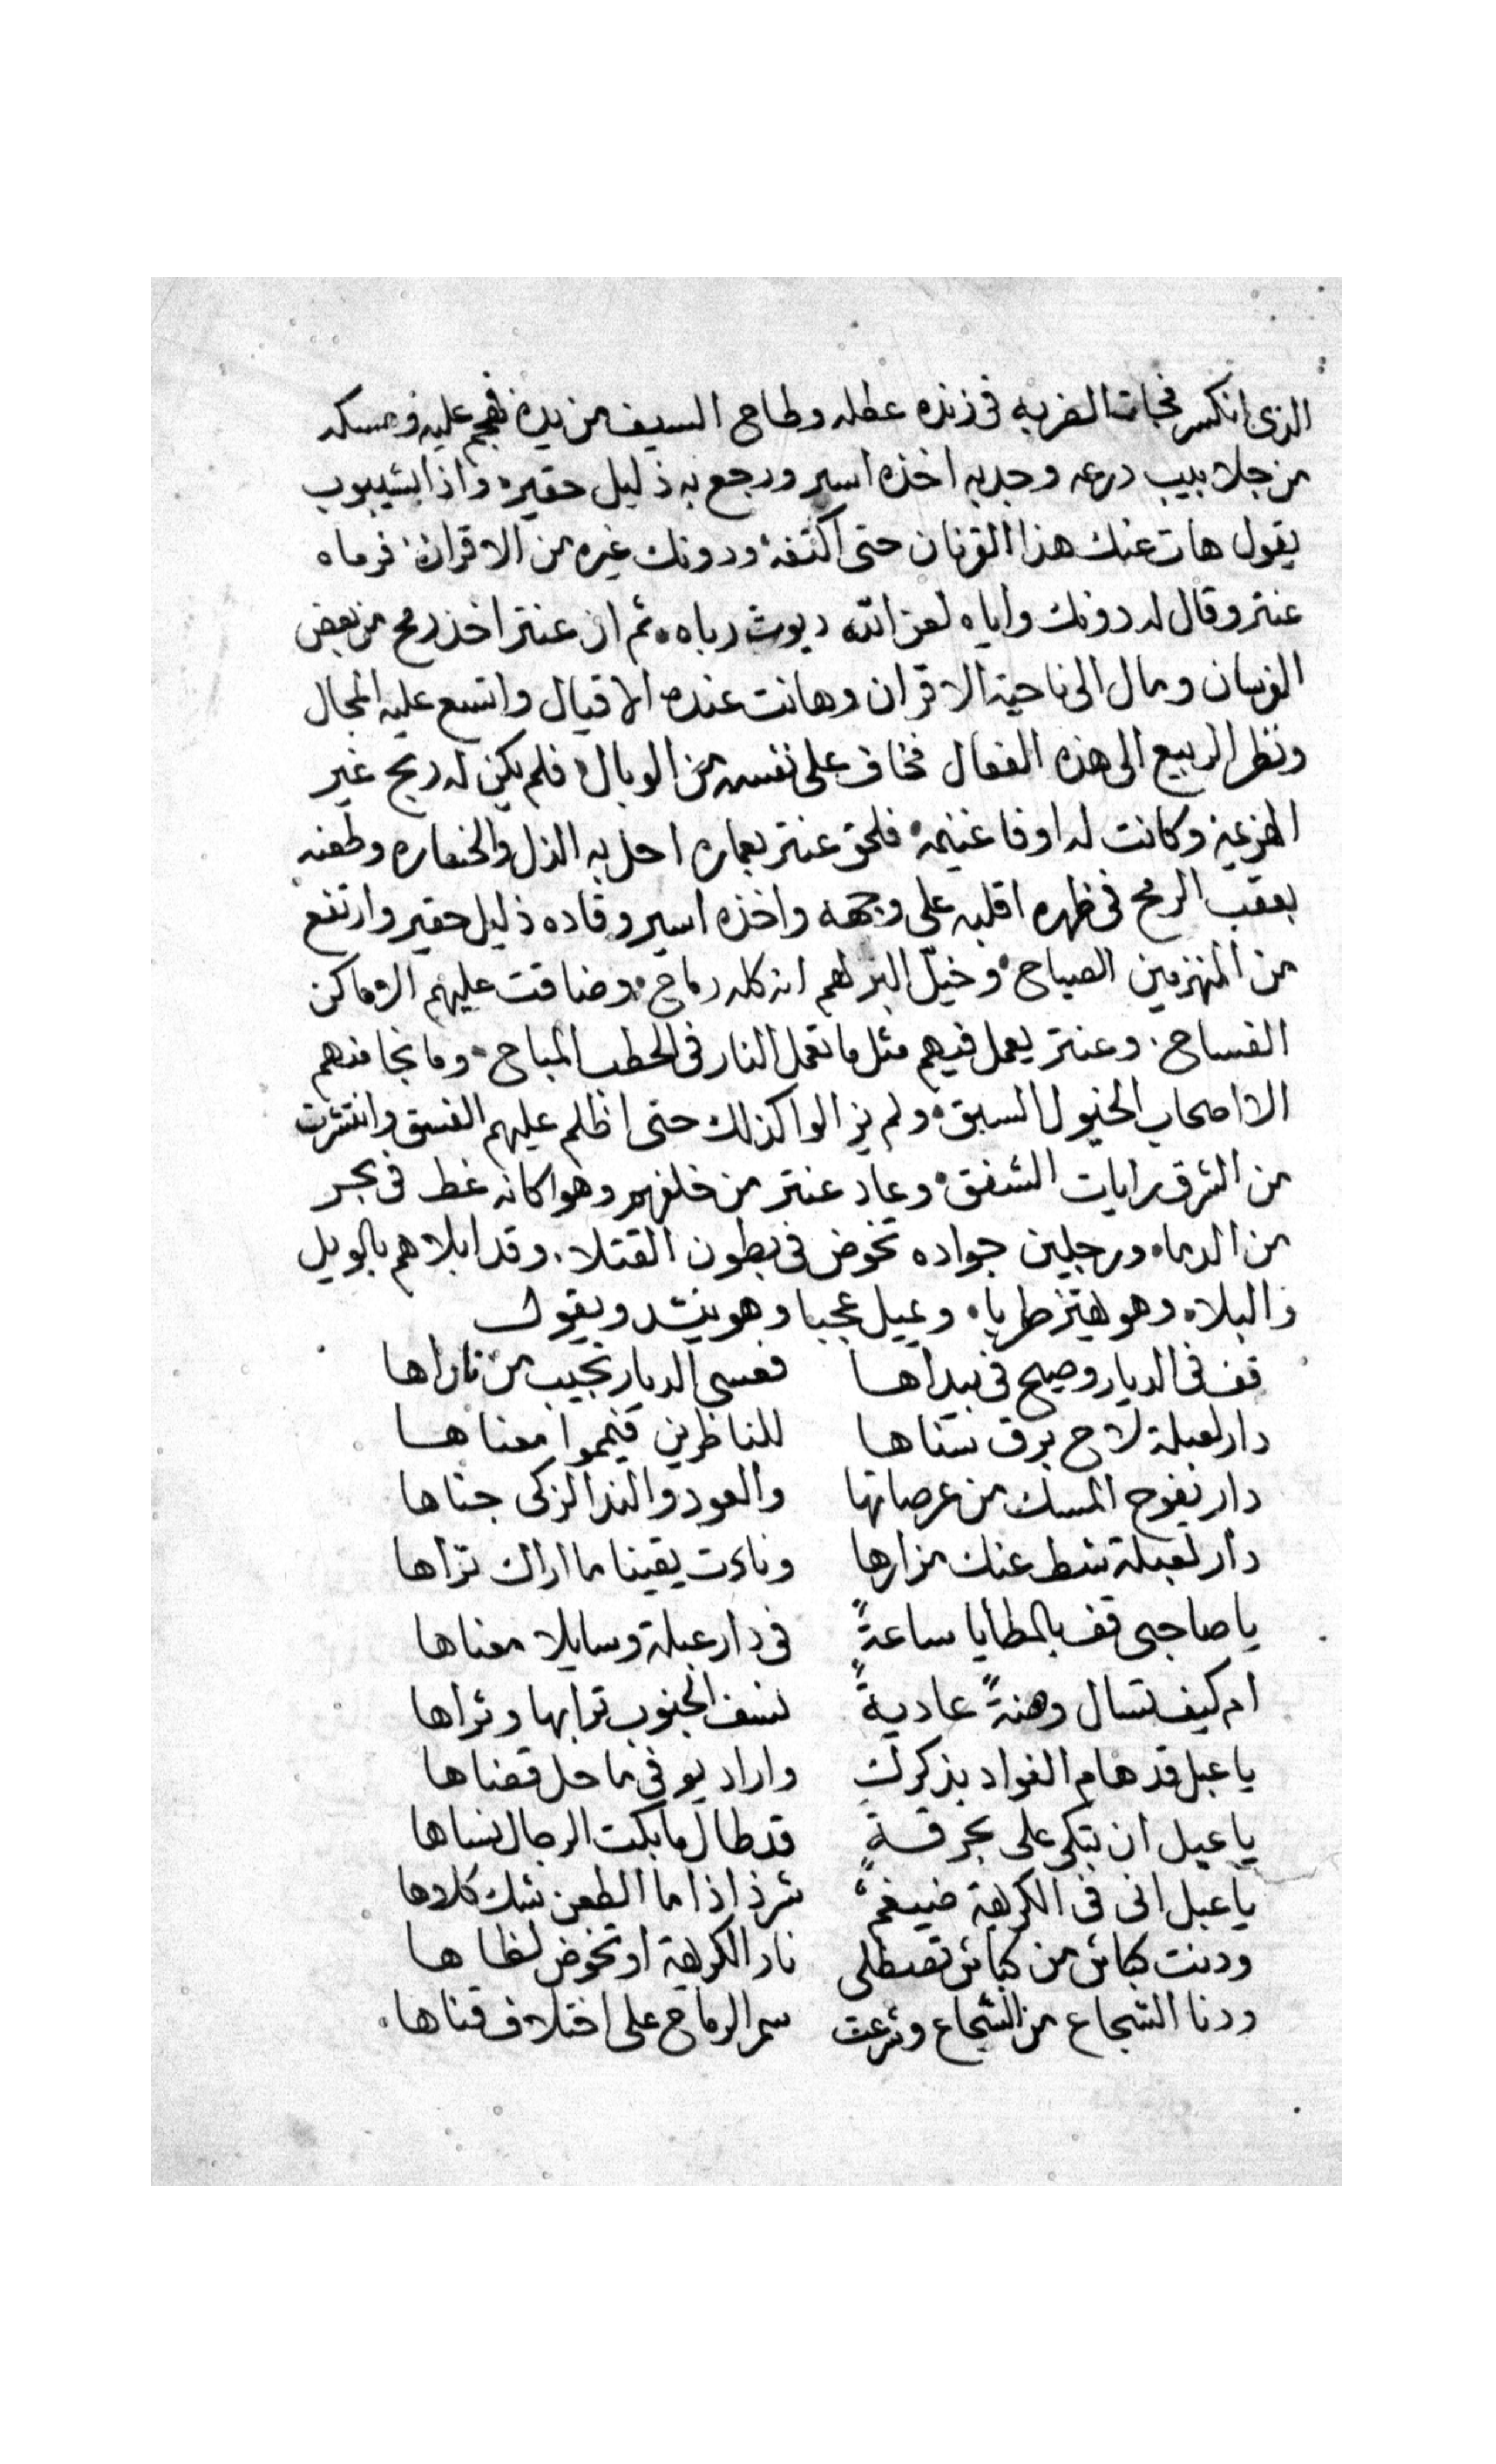 الذى انكسر فجات الضربه فى زنده عطله وطاح السيف من يده فهجم عليه ومسكه
من جلابيب درعه وجدبه اخذه اسير ورجع به ذليل حقير، واذا بشيبوب
يقول هات عنك هذا القرنان حتى اكتفه ودونك غيره من الاقران فرماه
عنتر وقال له دونك واياه لعن الله ديوث رباه، ثم ان عنتر اخذ رمح من بعض
الفرسان ومال الى ناحية الاقران وهانت عنده الاقيال واتسع عليه المجال
ونظر الربيع الى هذه الفعال فخاف على نفسه من الوبال فلم يكن له ربح غير
الهزيمة وكانت له اوفا غنيمه، فلحق عنتر بعماره احل به الذل والخساره وطعنه
بعقب الرمح فى ظهره اقلبه على وجهه واخذه اسير وقاده ذليل حقير وارتفع
من المنهزمين الصياح، وخيّل البر لهم انه كله رماح، وضاقت عليهم الاماكن
الفساح. وعنتر يعمل فيهم مثل ما تعمل النار فى الحطب المباح، وما نجا منهم
الا اصحاب الخيول السبق، ولم يزالوا كذلك حتى اظلم عليهم الغسق وانتشرت
من الشرق رايات الشفق، وعاد عنتر من خلفهم وهوا كانه غط فى بحر
من الدماء، ورجلين جواده تخوض فى بطون القتلا، وقد ابلاهم بالويل
والبلاء، وهو يهتز طربا، ويميل عجبا وهو ينشد ويقول
قف فى الديار وصيح فى بيداها فعسى الديار تجيب من ناداها
دار لعبلة لاح برق سناها للناظرين فيمموا مغناها
دار يفوح المسك من عرصاتها والعود والند الزكى جناها
دار لعبلة شط عنك مزارها وناءت يقينا ما اراك تراها
يا صاحبى قف بالمطايا ساعةً فى دار عبلة وسايلا مغناها
ام كيف تسال دمنةً عاديةً نسف الجنوب ترابها وثراها
يا عبل قد هام الفواد بذكركِ واراد يوفى ما حل قضناها
يا عبل ان تبكى على بحرقةٍ قد طال ما بكت الرجال نساها
يا عبل انى فى الكريهة ضيغمٌ شرذ اذا ما الطعن شك كلاها
ودنت كباش من كباش تصطلى نار الكريهة او تخوض لظاها
ودنا الشجاع من الشجاع وشرعت سمر الرماح على اختلاف قناها.